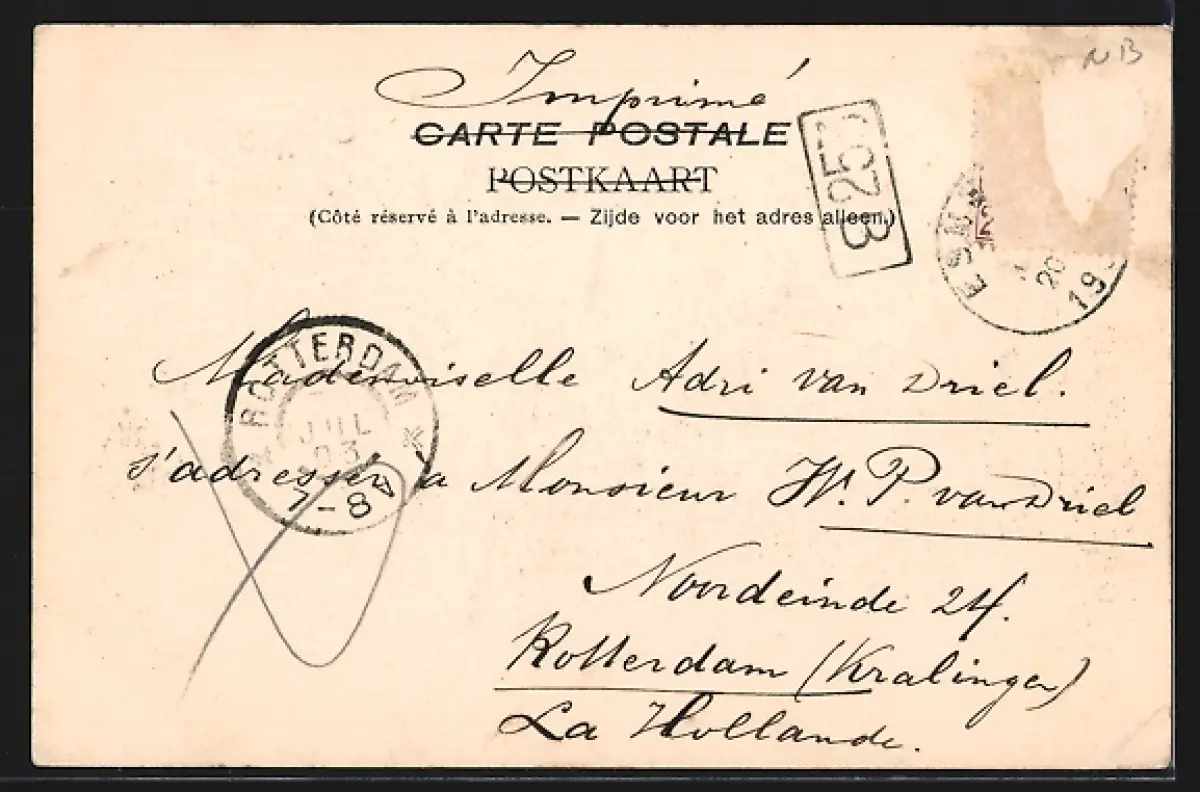 N B
Imprimé
CARTE POSTALE
POSTKAART
(Côté réservé à l'adresse. — Zijde voor het adres alleen.)
ESN
20
19
ROTTERDAM
JUL
03
7-8 A
Mademoiselle Adri van Driel.
s'adresser à Monsieur W. P. van Driel
Noordeinde 24.
Rotterdam (Kralingen)
La Hollande.